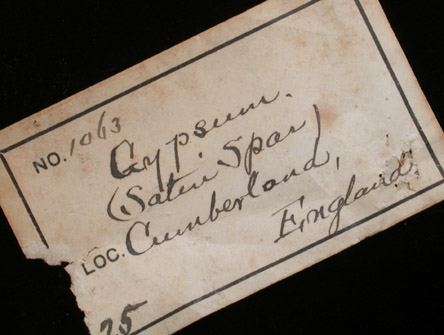 NO. 1063
Gypsum.
(Satin Spar)
LOC. Cumberland,
England.
25